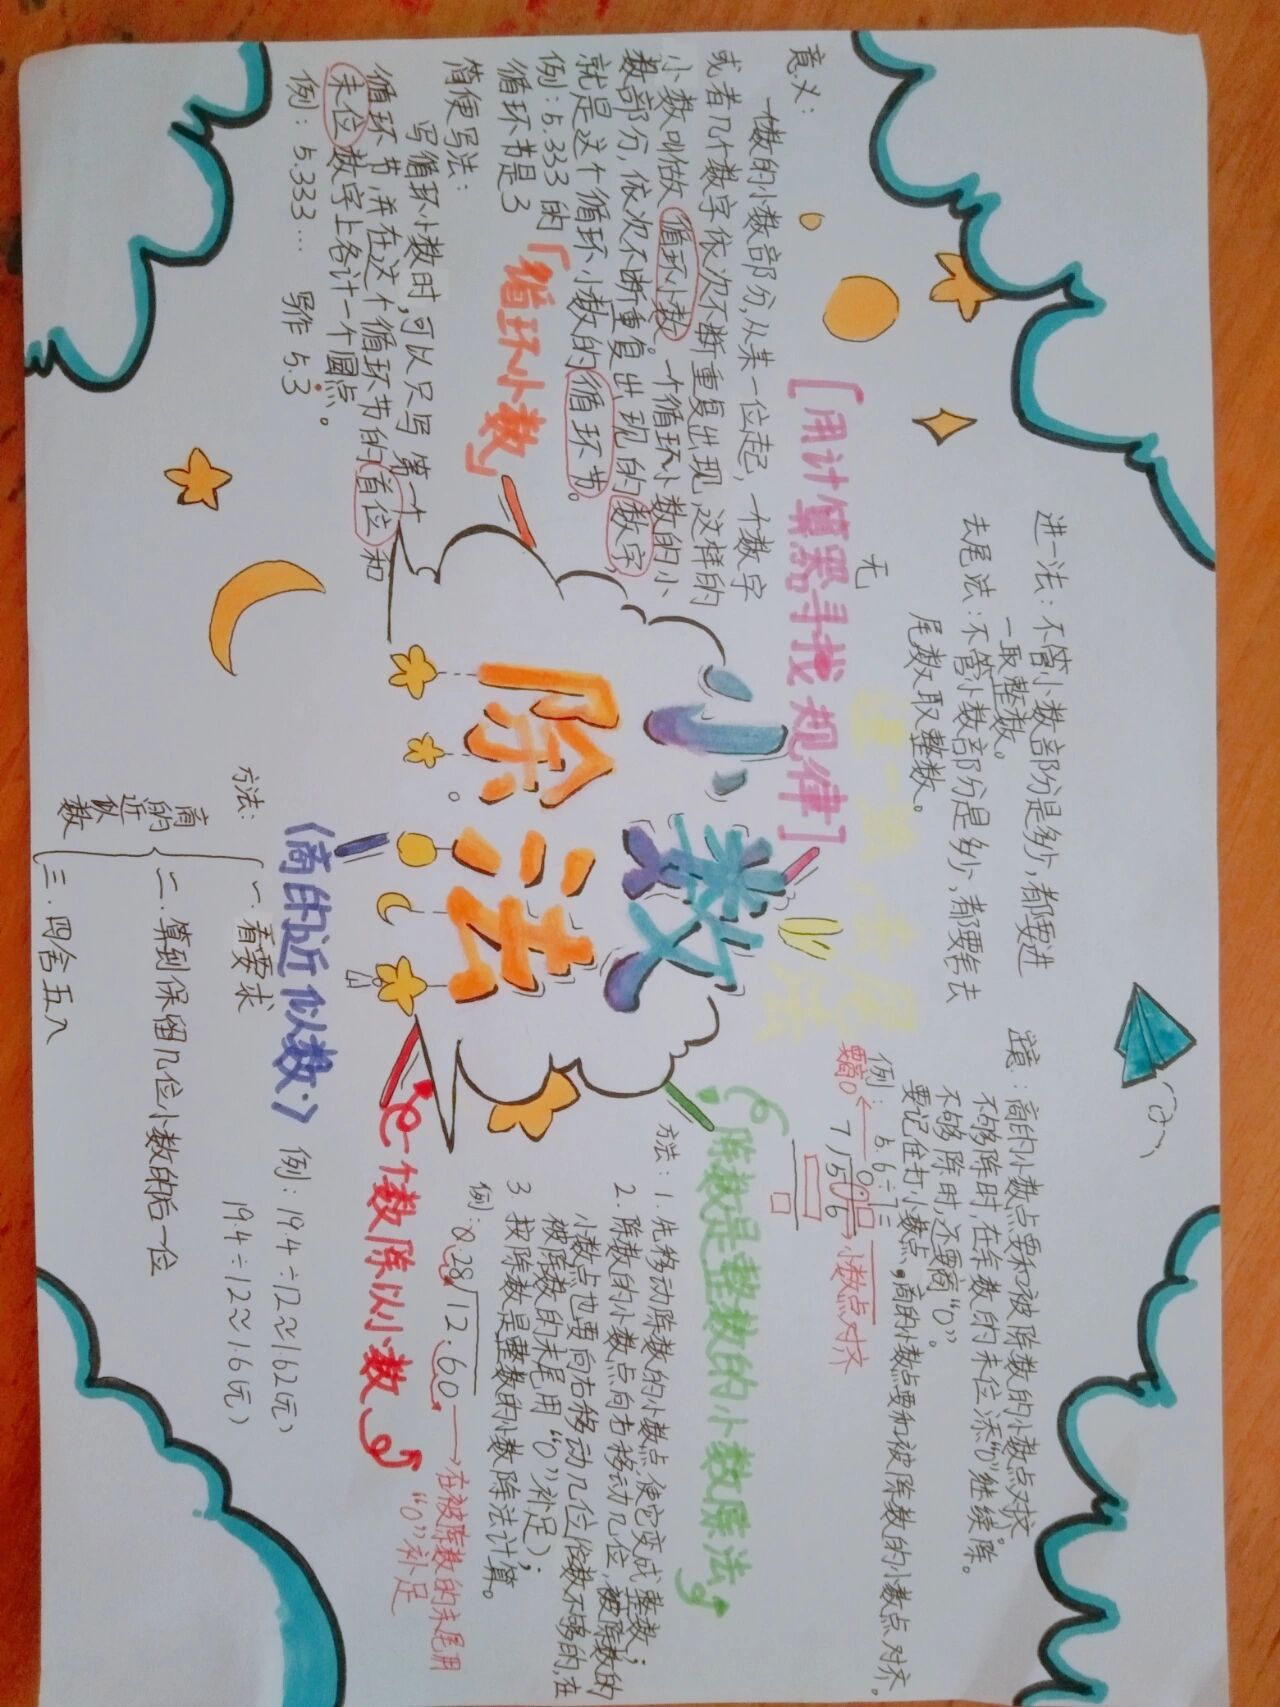 小数
除法
意义：
一个数的小数部分,从某一位起,一个数字
或者几个数字依次不断重复出现,这样的
小数叫做循环小数。一个循环小数的小
数部分,依次不断重复出现的数字,
就是这个循环小数的循环节。
例：5.333的
循环书是3
简便写法：
写循环小数时,可以只写第一个
循环节,并在这个循环节的首位和
末位数字上各计一个圆点。
例：5.333... 写作 5.3̇
「循环小数」
[用计算器寻找规律]
无
进一法：不管小数部分是多少,都要进
一取整数。
去尾法：不管小数部分是多少,都要去
尾数取整数。
进一法 去尾
法
注意：商的小数点要和被除数的小数点对齐
不够除时,在车数的末位添“0”继续除。
不够除时,还要商“0”。
要记住打小数点。商的小数点要和被除数的小数点对齐。
例：5.6÷7=
要商0
小数点对齐
除数是整数的小数除法
方法：1.先移动除数的小数点,使它变成整数；
2.除数的小数点向右移动几位,被除数的
小数点也要向右移动几位(位数不够的,在
被除数的末尾用“0”补足)；
3 按除数是整数的小数除法计算。
例：0.28 12.60
在被除数的末尾用
“0”补足
一个数除以小数
《商的近似数》
例：19.4÷12≈1.62(元)
19.4÷12≈1.6(元)
方法：
商的近似数
一.看要求
二.算到保留几位小数的后一位
三.四舍五入